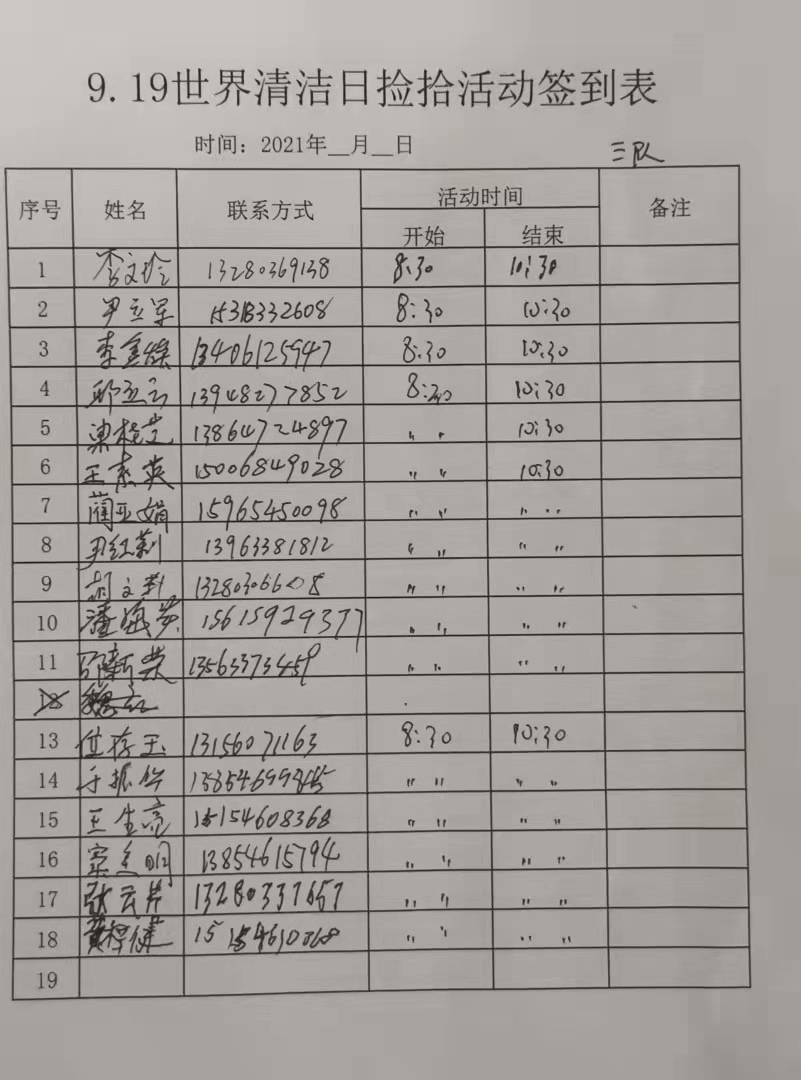 9.19世界清洁日捡拾活动签到表
时间：2021年__月__日
三队
序号 姓名 联系方式 活动时间 备注
开始 结束
1 李文玲 13280369138 8:30 10:30
2 尹立军 15318332608 8:30 10:30
3 李金焕 13406125947 8:30 10:30
4 邱立云 13948277852 8:30 10:30
5 梁桂芝 13864724897 〃 〃 10:30
6 王素英 15006849028 〃 〃 10:30
7 蔺亚娟 15965450098 〃 〃 〃 〃
8 尹红莉 13963381812 〃 〃 〃 〃
9 胡文 〃 〃 〃 〃
10 潘 15615929377 〃 〃 〃 〃
11 新荣 13563373459 〃 〃 〃 〃
13 存玉 13156071163 8:30 10:30
14 于振华 〃 〃 〃 〃
15 王生亮 15154608368 〃 〃 〃 〃
16 13854615794 〃 〃 〃 〃
17 张云芹 13280337657 〃 〃 〃 〃
18 黄 健 〃 〃 〃 〃
19